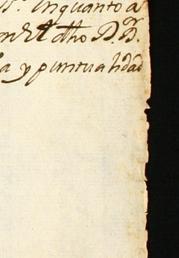 enquanto a
en el dho D. D.
a y puntualidad